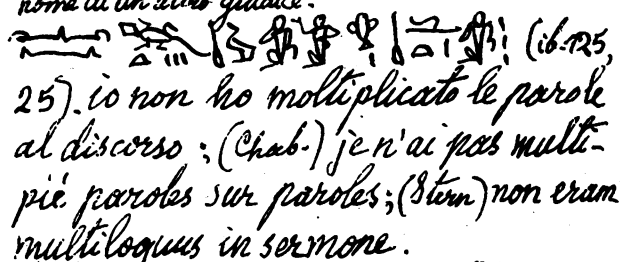 nome di un altro giudice.
(ib. 125,
25). io non ho moltiplicato le parole
al discorso; (Chab.) je n'ai pas multi-
plié paroles sur paroles; (Stern) non eram
multiloquus in sermone.